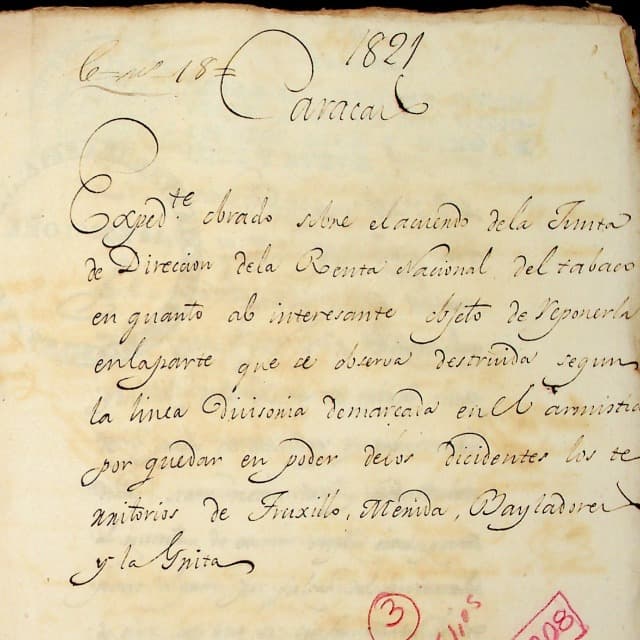 1821
18
Caracas
Exped.te obrado sobre el acuerdo dela Junta
de Direccion dela Renta Nacional del tabaco
en quanto al interesante objeto de reponerla
enlaparte que se observa destruida segun
la linea Divisoria demarcada en el armistic
por quedar en poder delos dicidentes los te
rritorios de Truxillo, Merida, Bayladores
y la Grita
3